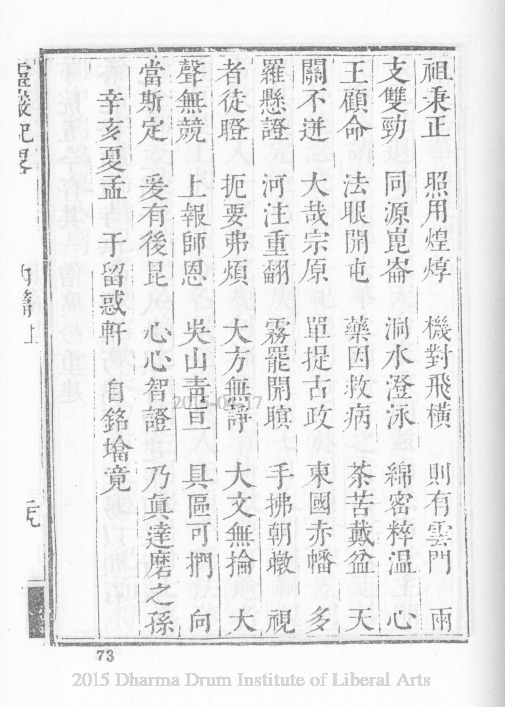 祖秉正　照用煌焞　機對飛橫　則有雲門　兩
支雙勁　同源崑崙　洞水澄泳　綿密粹温　心
王顧命　法眼開屯　藥因救病　茶苦戴盆　天
關不迸　大哉宗原　單提古政　東國赤幡　多
羅懸證　河注重翻　霧罷開暝　手拂朝暾　視
者徒瞪　扼要弗煩　大方無諍　大文無掄　大
聲無競　上報師恩　吳山壽亘　具區可捫　向
當斯定　爰有後昆　心心智證　乃眞達磨之孫
辛亥夏孟　于留惑軒　自銘墖竟
靈巖紀畧　內篇上
73
2015-08-17
2015 Dharma Drum Institute of Liberal Arts